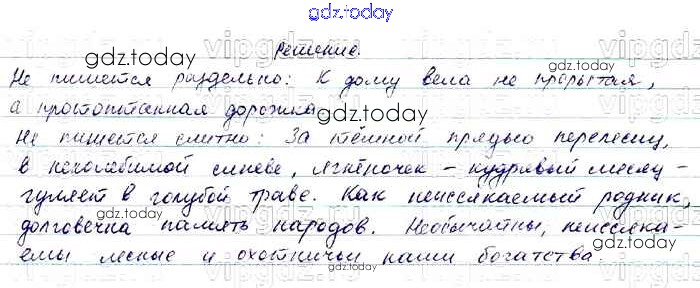 gdz.today
Решение.
Не пишется раздельно: К дому вела не прорытая,
а протоптанная дорожка
Не пишется слитно: За тёмной прядью перелесиц,
в неколебимой синеве, ягнёночек – кудрявый месяц
гуляет в голубой траве. Как неиссякаемый родник,
долговечна память народов. Необычайны, неиссяка-
емы лесные и охотничьи наши богатства.